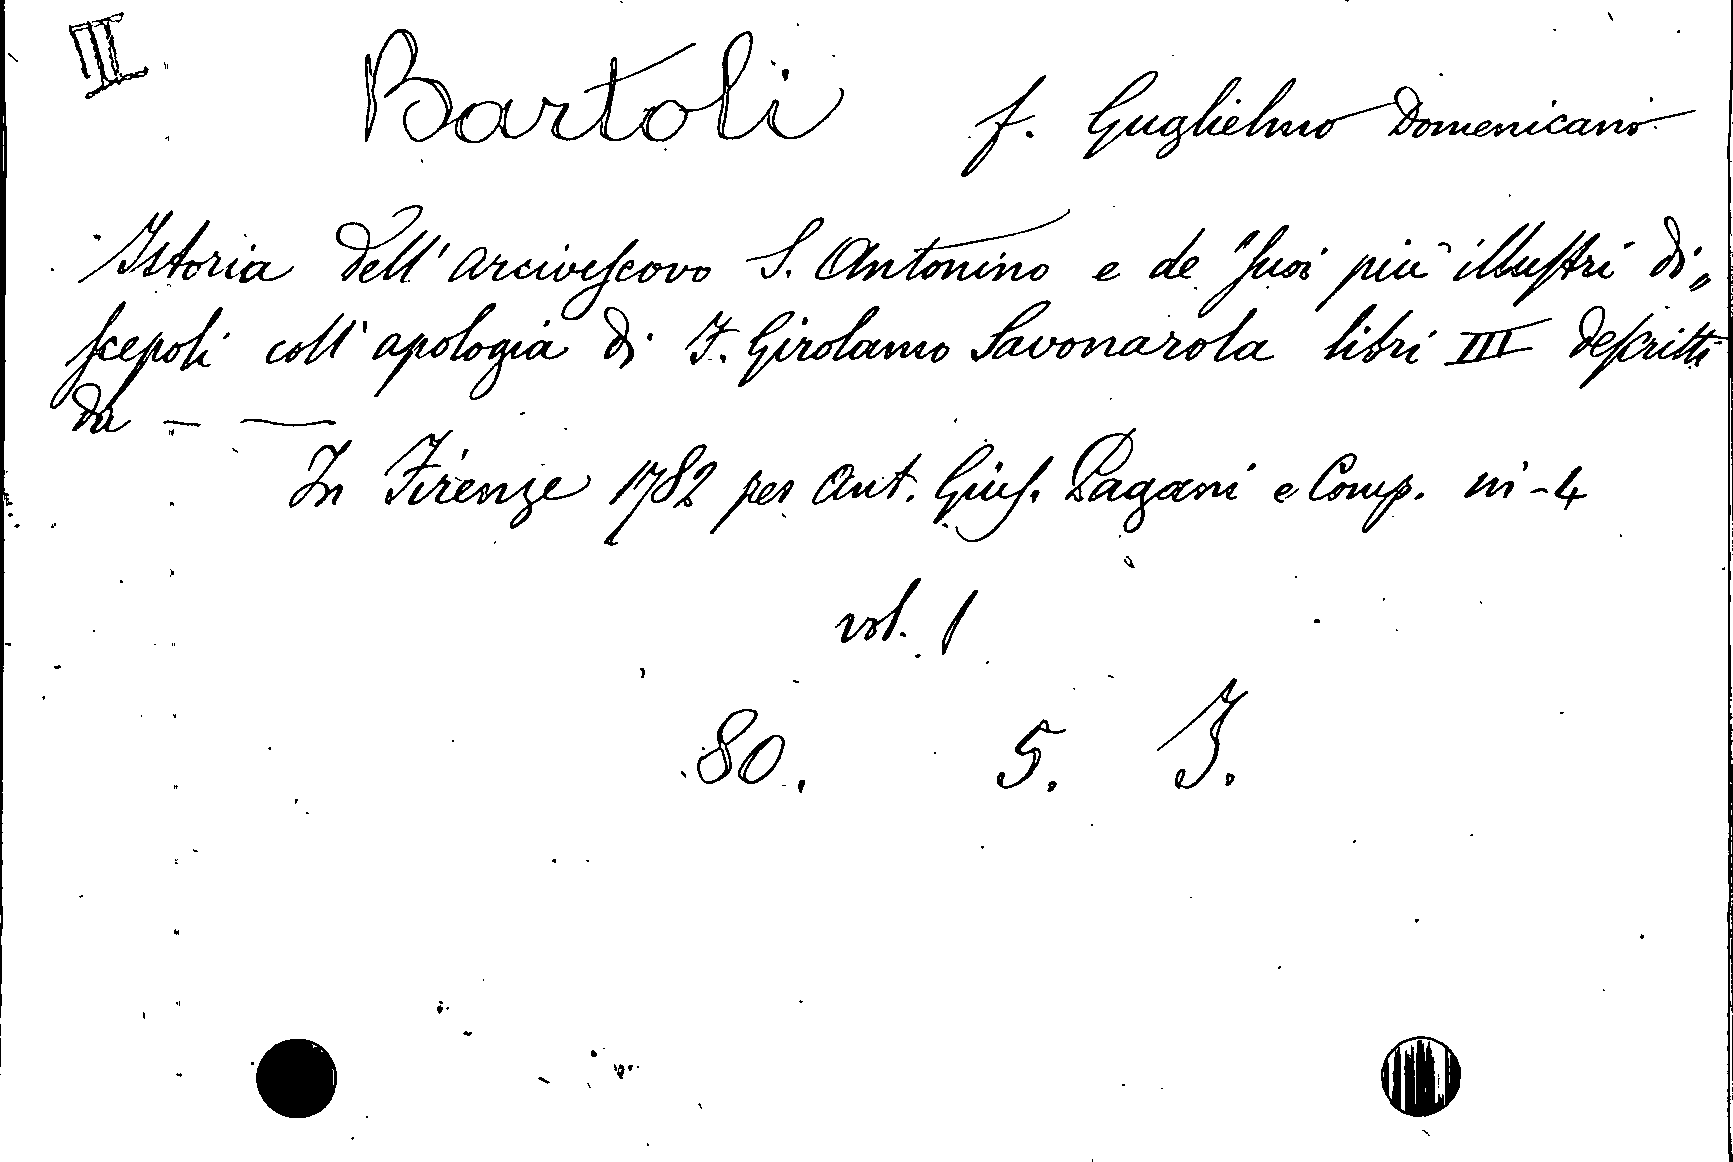 III
Bartoli f. Guglielmo Domenicano
Istoria dell' arcivescovo S. Antonino e de' suoi più illustri di„
scepoli coll' apologia di F. Girolamo Savonarola libri III descritti
da — —
In Firenze 1782 per Ant. Gius. Pagani e Comp. in-4
vol. 1
80. 5. J.